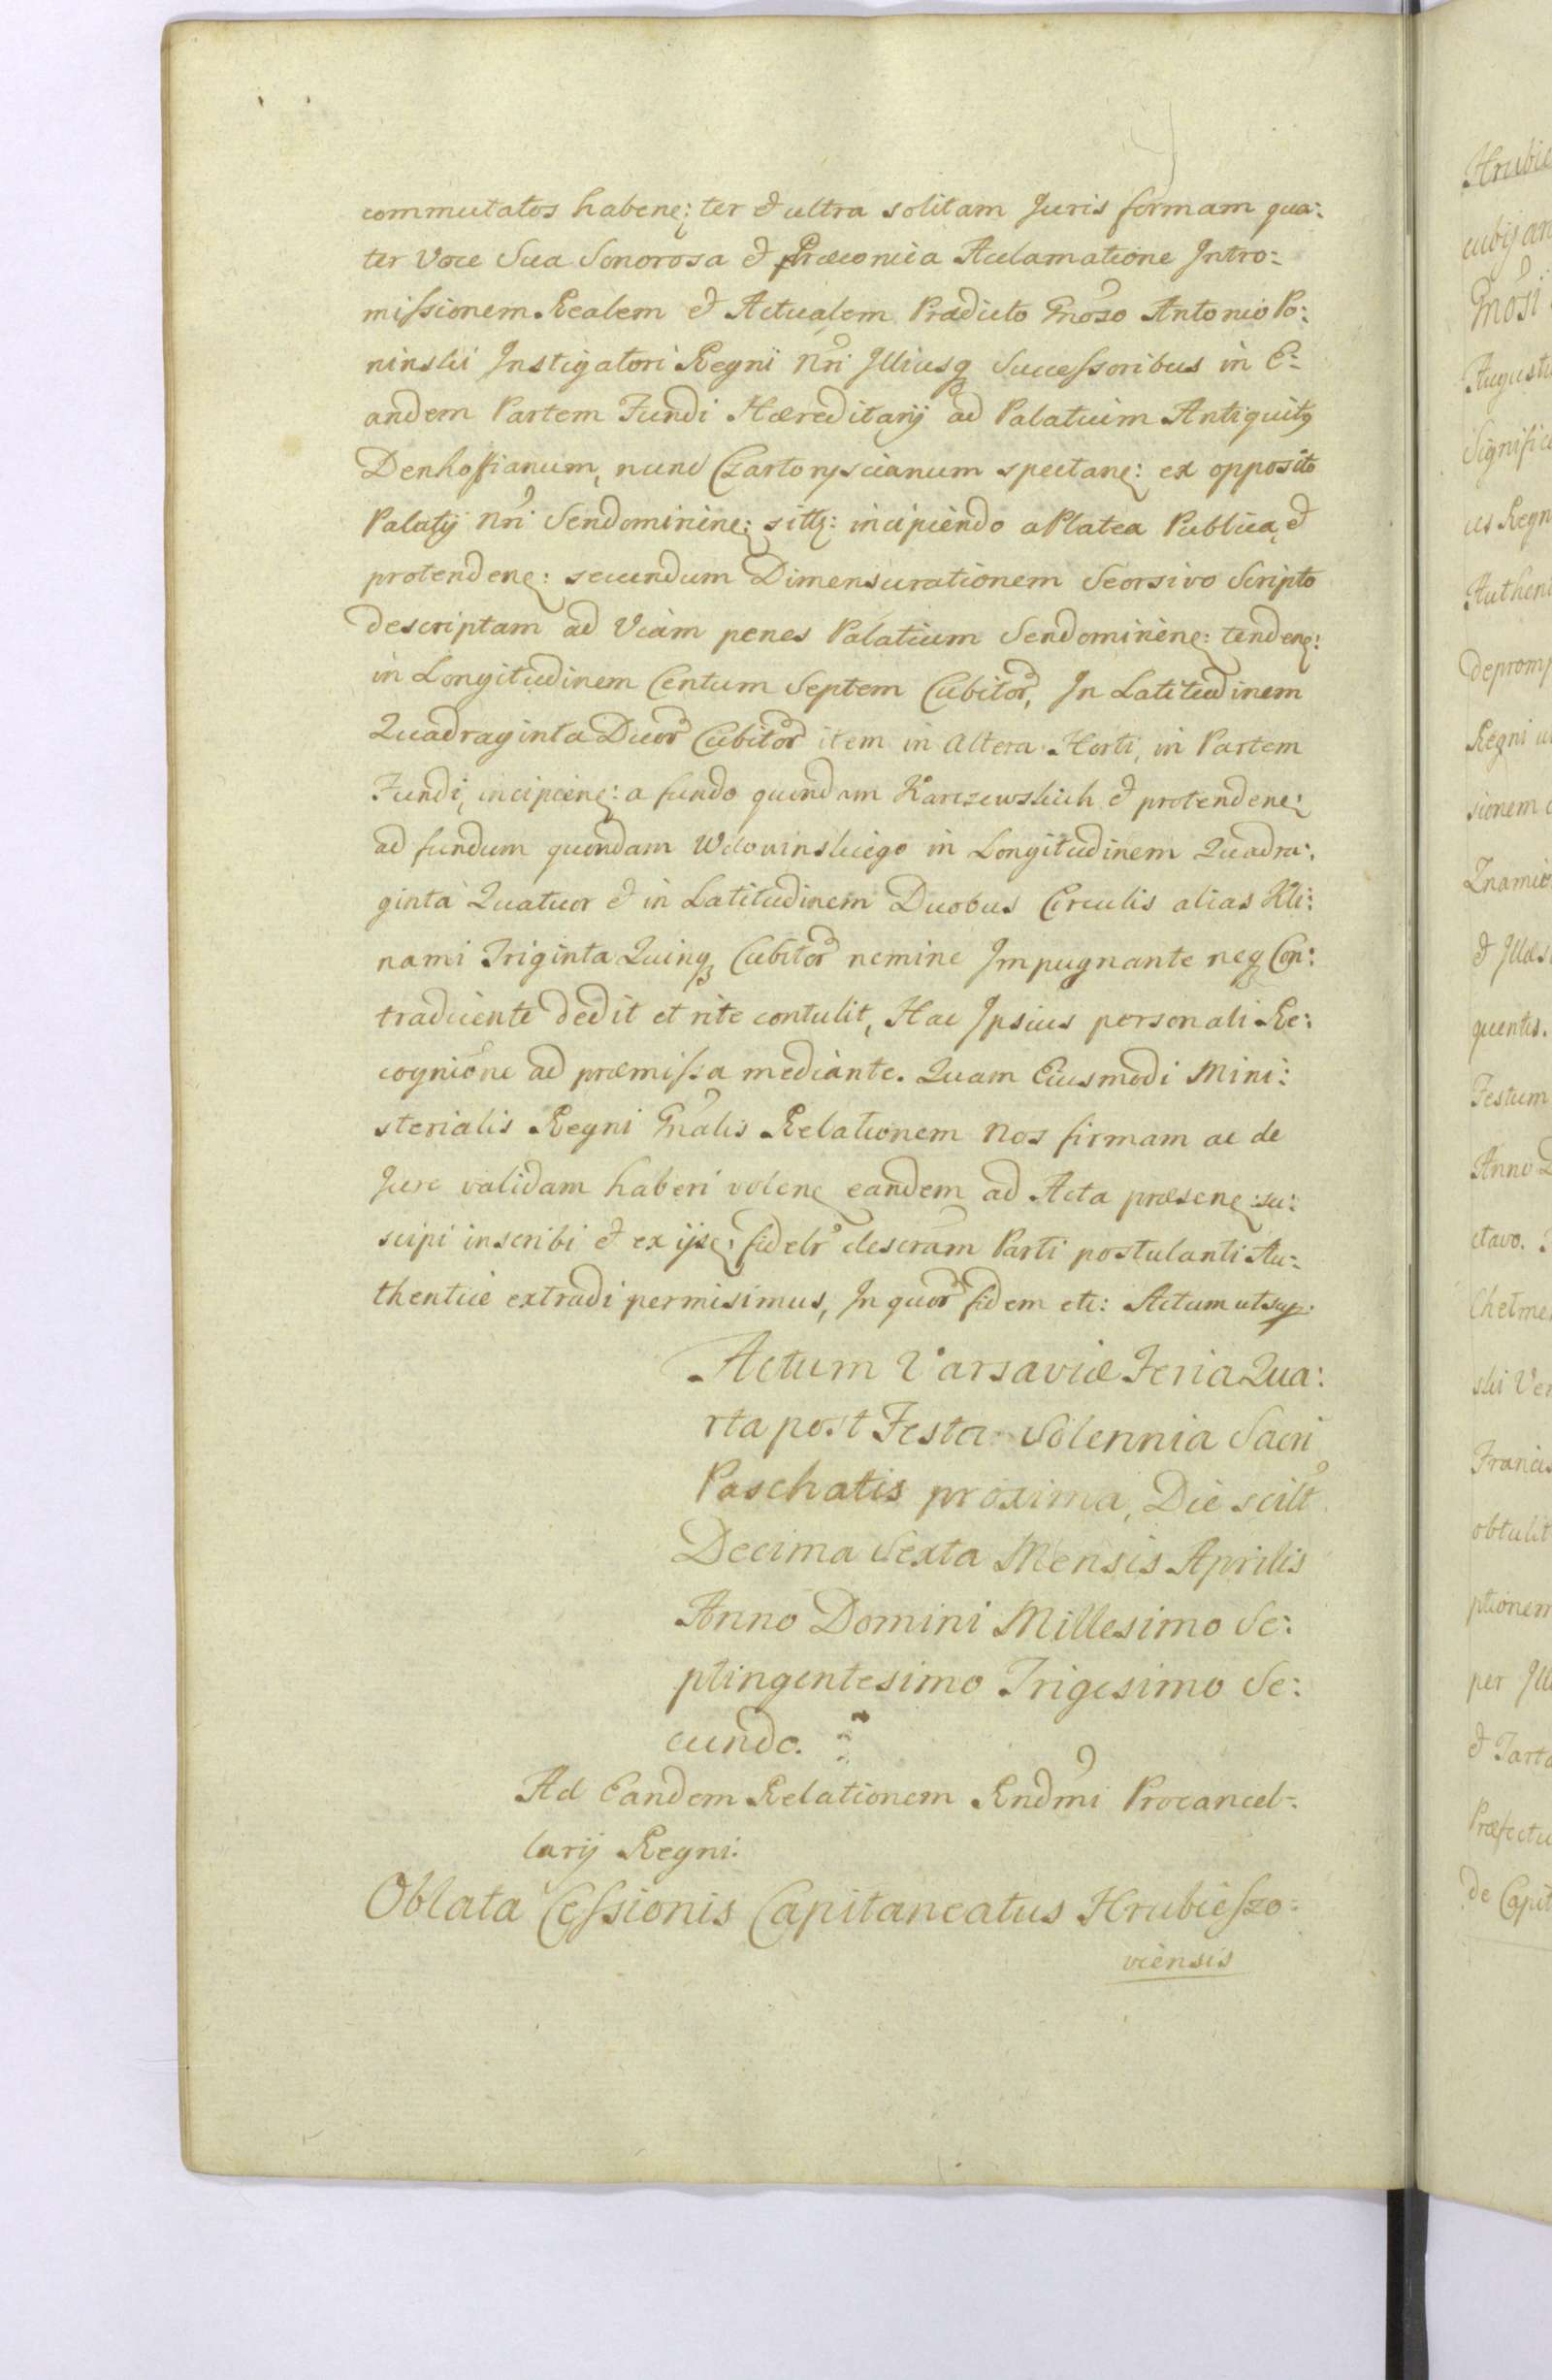 commutatos habenę: ter & ultra solitam Juris formam qua:
ter Voce Sua Sonorosa & Præconica Aclamatione Intro:
missionem Realem & Actualem Prædicto Gnõso Antonio Po:
ninski Instigatori Regni Nri Illiusq Successoribus in E-
andem Partem Fundi Hæreditarij ad Palatium Antiquitq
Denhoffianum, nunc Czartoryscianum spectanę: ex opposito
Palatij Nri Sendominenę: sitę: incipiendo a Platea Publica, &
protendenę: secundum Dimensurationem Seorsivo Scripto
descriptam ad Viam penes Palatium Sendominenę: tendenę:
in Longitudinem Centum Septem Cubitor, In Latitudinem
Quadraginta Duor Cubitor item in altera Horti, in Partem
Fundi, incipienę: a fundo quondam Karczewskich & protendenę:
ad fundum quondam Wdowinskiego in Longitudinem Quadra:
ginta Quatuor & in Latitudinem Duobus Circulis alias Kli:
nami Triginta Quinq Cubitor nemine Impugnante neq Con:
tradicente dedit et rite contulit, Hac Ipsius personali Re:
cognione ad præmissa mediante. Quam Eiusmodi Mini:
sterialis Regni Gnalis Relationem Nos firmam ac de
Jure validam haberi volenę eandem ad Acta præsenę: su:
scipi inscribi & ex ijsę: fidelr descram Parti postulanti Au-
thentice extradi permisimus, In quor fidem etc: Actum ut sup:
Actum Varsaviæ Feria Qua:
rta post Festa Solennia Sacri
Paschatis proxima, Die scilt
Decima Sexta Mensis Aprilis
Anno Domini Millesimo Se:
ptingentesimo Trigesimo Se:
cundo.
Ad Eandem Relationem Rndmi Procancel-
larij Regni:
Oblata Cessionis Capitaneatus Hrubieszo-
viensis
Hrubie
cubij an
Gnosi
Augusti
Significa
us Regn
Authen
depromp
Regni
sionem
Znamie
& Illus
quentis.
Festum
Anno D
ctavo.
Chełme
ski Ver
Francis
obtulit
ptionem
per Ill
& Tarta
Præfectu
de Capit